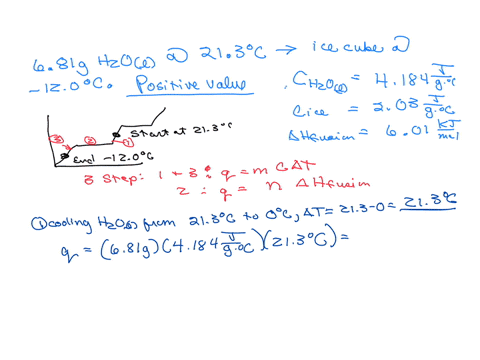 6.81g H2O(l) @ 21.3°C → ice cube @
-12.0°C. Positive value
C H2O(l) = 4.184 J/g·°C
Cice = 2.03 J/g·°C
ΔHfusion = 6.01 kJ/mol
③ ② ①
Start at 21.3°C
End -12.0°C
3 Step: 1 + 3 : q = m C ΔT
2 : q = n ΔHfusion
① cooling H2O(l) from 21.3°C to 0°C, ΔT = 21.3-0 = 21.3°C
q = (6.81g)(4.184 J/g·°C)(21.3°C) =